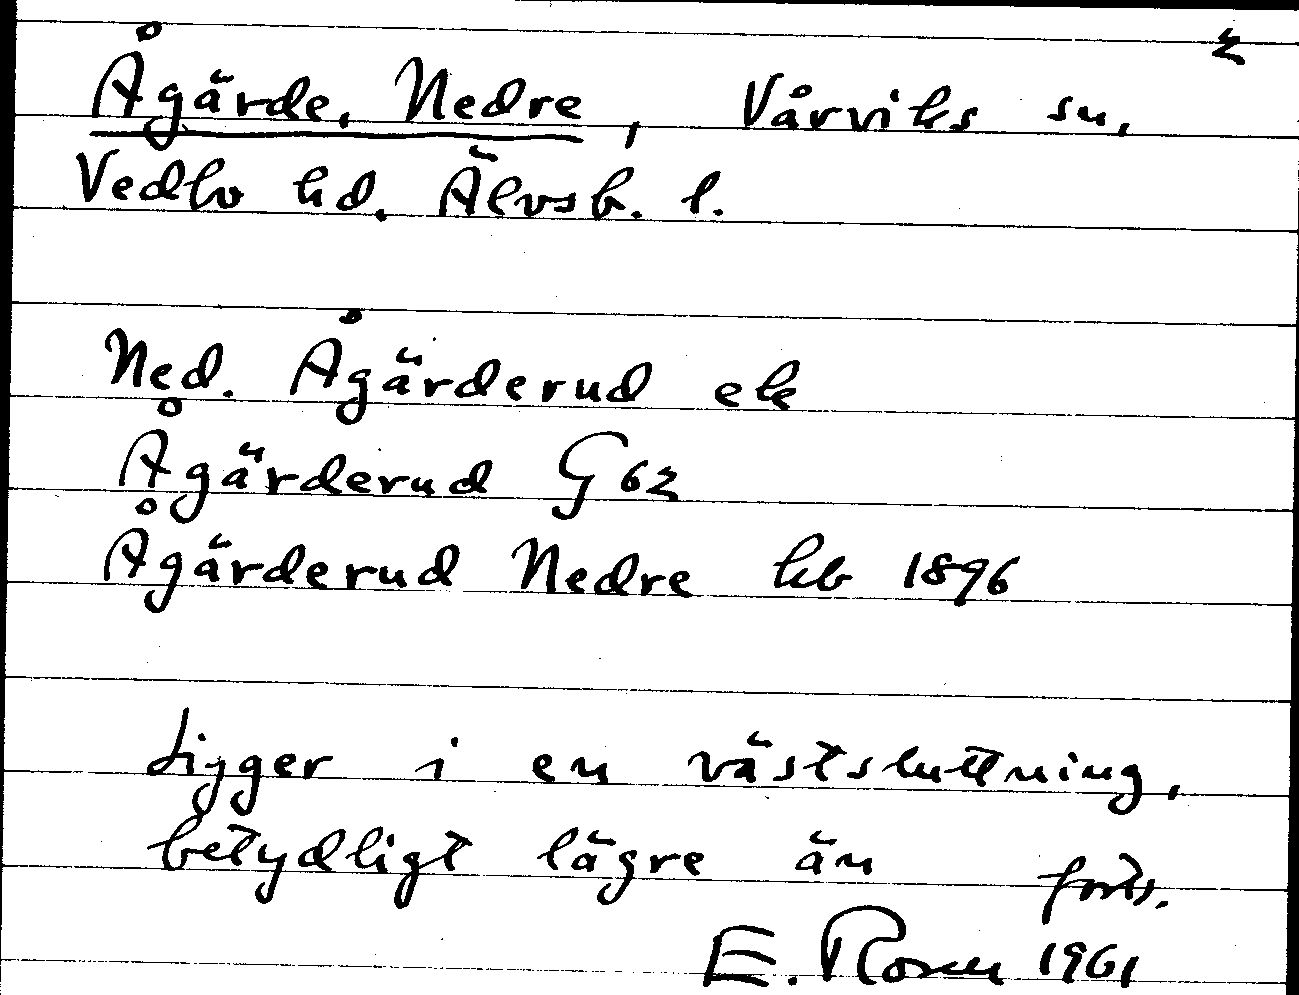 2
Ågärde, Nedre, Vårviks sn,
Vedbo hd. Älvsb. l.
Ned. Ågärderud ek
Ågärderud G 62
Ågärderud Nedre kb 1896
Ligger i en västsluttning,
betydligt lägre än forts.
E. Rosen 1961